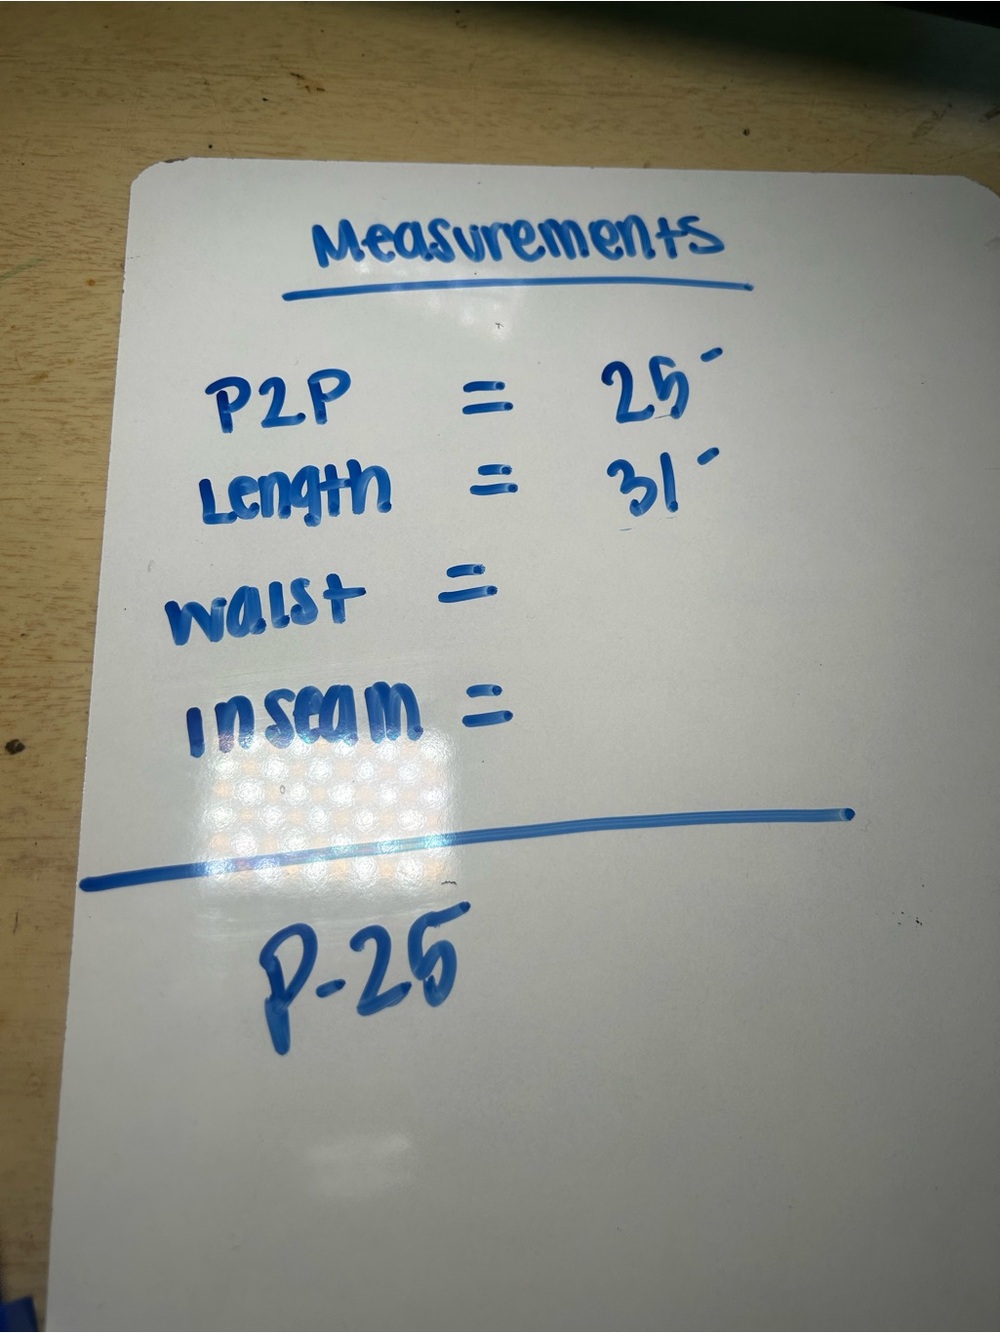 Measurements
P2P = 25"
Length = 31"
Waist =
inseam =
P-25